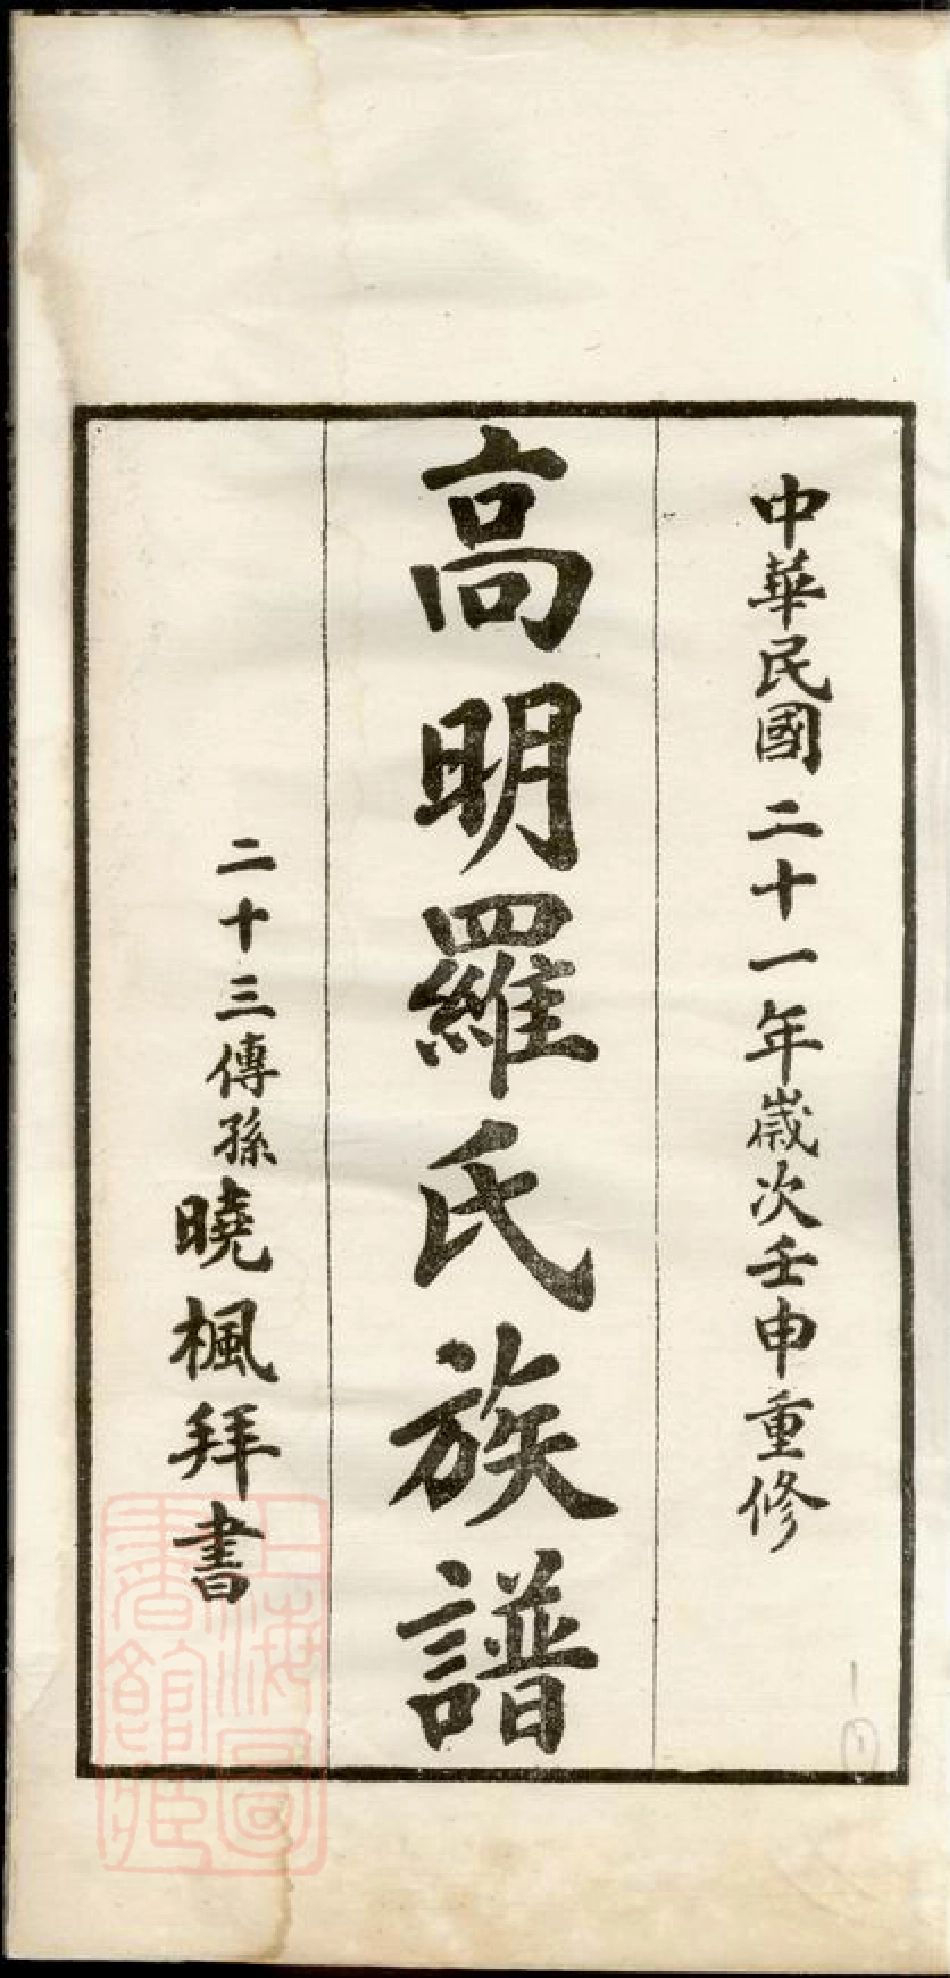 中華民國二十一年歲次壬申重修
高明羅氏族譜
二十三傳孫曉楓拜書
上海圖書館藏